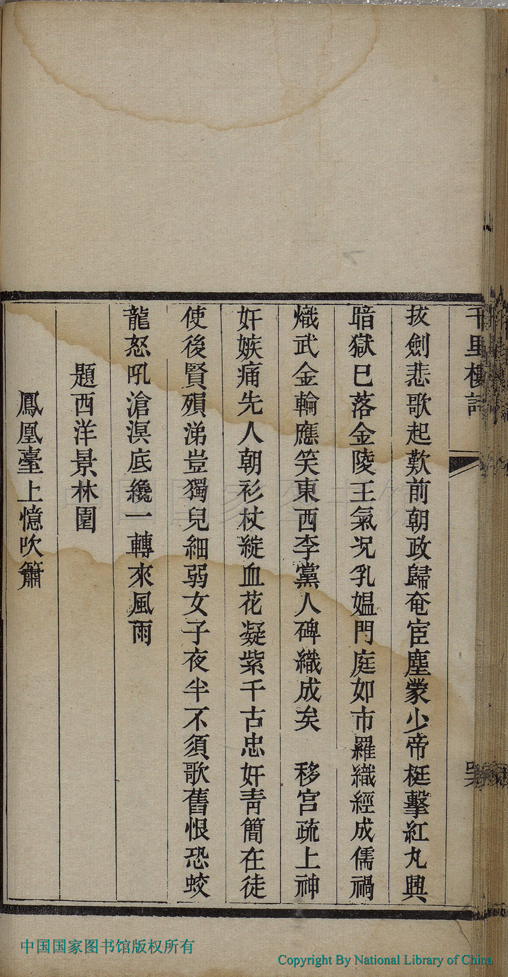 千里樓詩
拔劍悲歌起歎前朝政歸奄宦塵蒙少帝梃擊紅丸興
暗獄巳落金陵王氣况乳媼門庭如市羅織經成儒禍
熾武金輪應笑東西李黨人碑織成矣　移宫疏上神
奸嫉痛先人朝衫杖綻血花凝紫千古忠奸靑簡在徒
使後賢殞涕豈獨兒細弱女子夜半不須歌舊恨恐蛟
龍怒吼滄溟底纔一轉來風雨
題西洋景林圍
鳳凰臺上憶吹簫
中国国家图书馆版权所有
Copyright By National Library of China